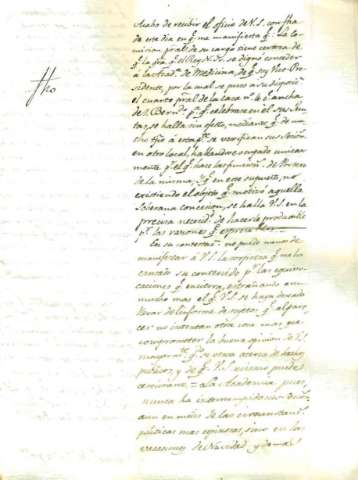 fho
Acabo de recibir el oficio de V.S. con fha
de este dia en q.e me manifiesta q.e la Co-
mision pral. de su cargo tiene certeza de
q.e la gra. q.e el Rey N.S. se dignó conceder
á la Acad.a de Medicina, de q.e soy Vice-Pre-
sidente, por la cual se puso á su disposi.n
el cuarto pral. de la casa n.o 4 C. ancha
de S. Bern.do p.a q.e celebrase en él sus Jun-
tas, se halla sin efecto, mediante q.e de mu-
cho tpo. á esta p.te se verifican sus Sesion.s
en otro local, hallandose ocupado unicam-
ente p.r el q.e hace las funcion.s de Portero
de la misma; q.e en este supuesto, no
existiendo el objeto q.e motivó aquella
Soberana concesion, se halla V.S. en la
precisa necesid. de hacerla productible
p.r las razones q.e expresa.
En su contestac.n no puedo menos de
manifestar á V.S. la sorpresa q.e me ha
causado su contenido p.r las equivo-
caciones q.e encierra, extrañando aun
mucho mas el q.e V.S. se haya dexado
llevar de informes de sugetos q.e al pare-
cer no intentan otra cosa mas que
comprometer la buena opinion de V.S.
mayorm.te q.do se versa acerca de hechos
publicos, y de q.e V.S. mismo puede
cerciorarse. = La Academia pues,
nunca ha interrumpido sus Sesio.s
aun en medio de las circunstanc.s
politicas mas espinosas, sino en las
vacaciones de Navidad y demas